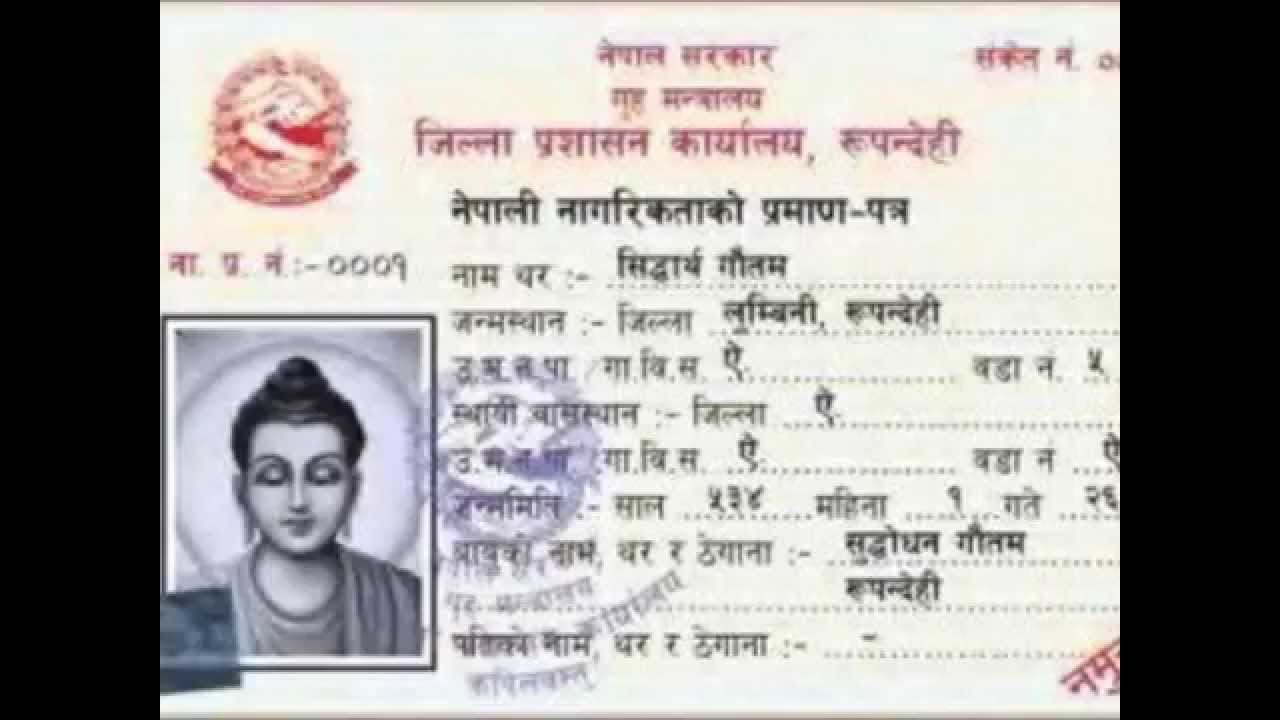 नेपाल सरकार
संकेत नं. ०
गृह मन्त्रालय
जिल्ला प्रशासन कार्यालय, रूपन्देही
नेपाली नागरिकताको प्रमाण-पत्र
ना. प्र. नं.:-०००१
नाम थर :- सिद्धार्थ गौतम
जन्मस्थान :- जिल्ला लुम्बिनी, रूपन्देही
उ.म.न.पा गा.वि.स. ऐ. वडा नं. ५
स्थायी बासस्थान :- जिल्ला ऐ.
उ.म.न.पा गा.वि.स. ऐ. वडा नं ऐ
जन्ममिति :- साल ५३४ महिना १ गते २६
बाबुको नाम, थर र ठेगाना :- सुद्धोधन गौतम
रूपन्देही
पतिको नाम, थर र ठेगाना :- -
गृह मन्त्रालय
कपिलवस्तु